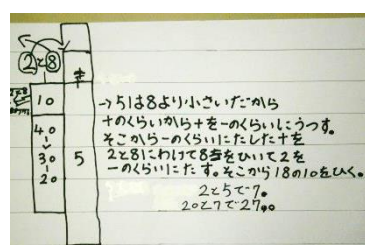 2と8
10
40
30
20
5
→51は8より小さいだから
十のくらいから十を一のくらいにうつす。
そこから一のくらいにたした十を
2と8にわけて8をひいて2を
一のくらいにたす。そこから18の10をひく。
2と5で7。
20と7で27。